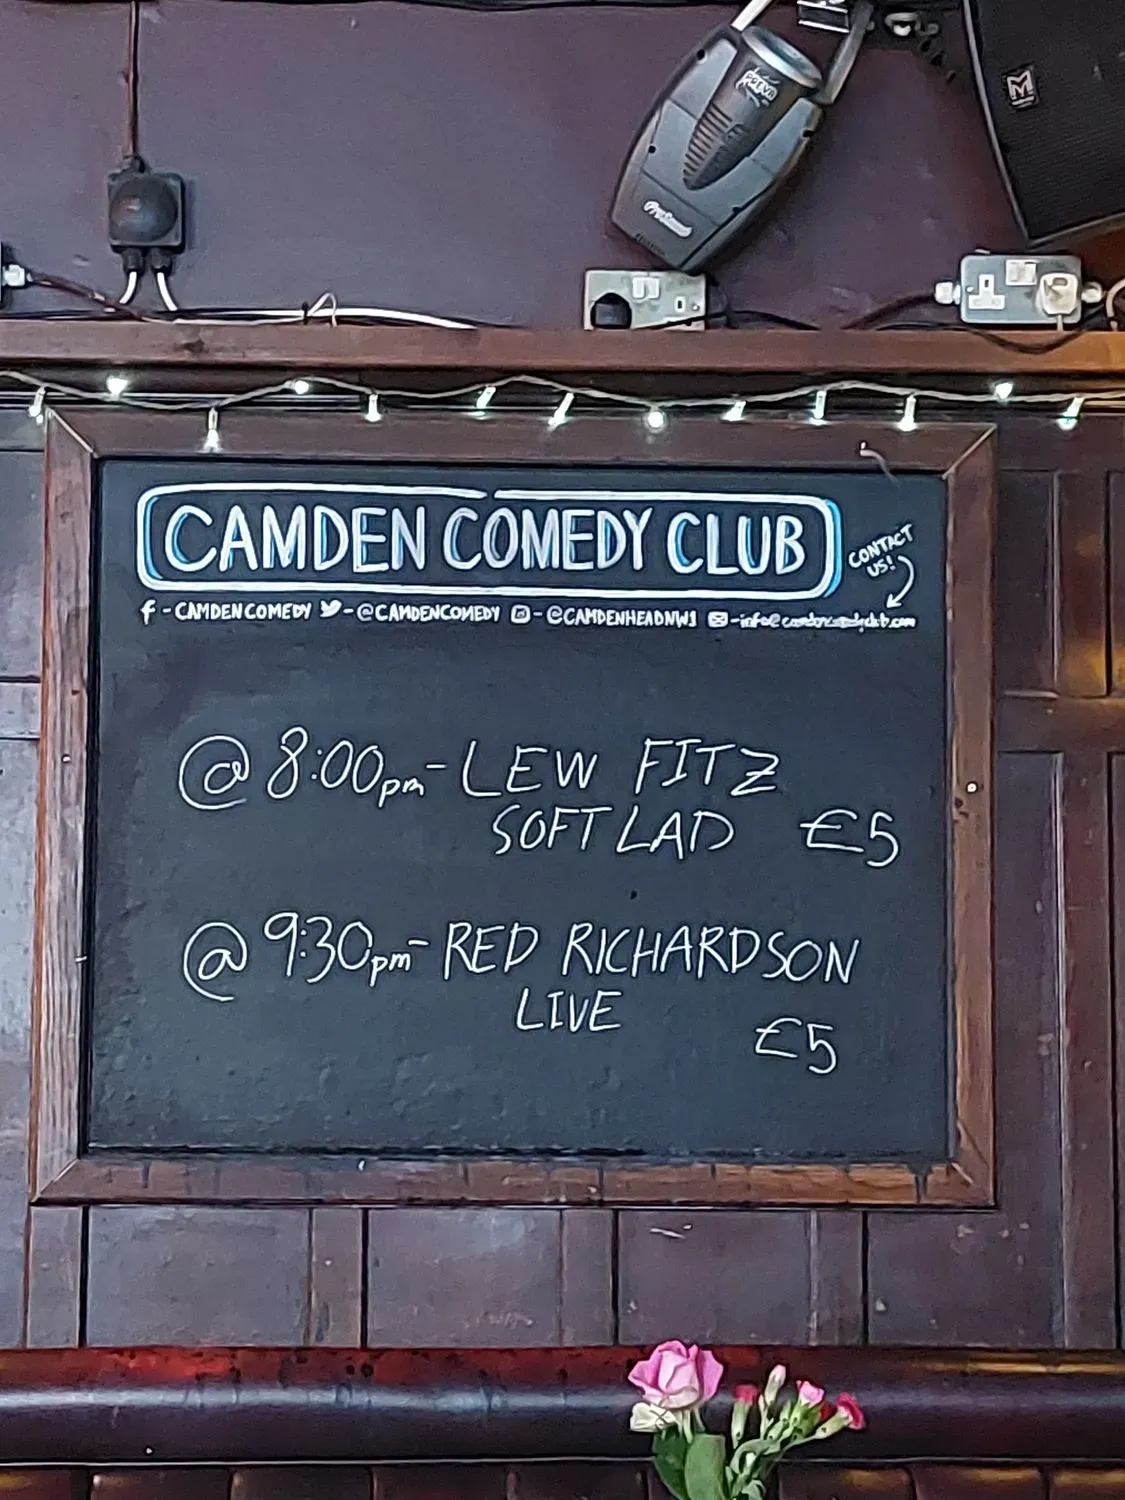 CAMDEN COMEDY CLUB
CONTACT
US!
f - CAMDENCOMEDY - @CAMDENCOMEDY - @CAMDENHEADNW1 - info@camdencomedyclub.com
@ 8:00pm - LEW FITZ
SOFT LAD £5
@ 9:30pm - RED RICHARDSON
LIVE
£5